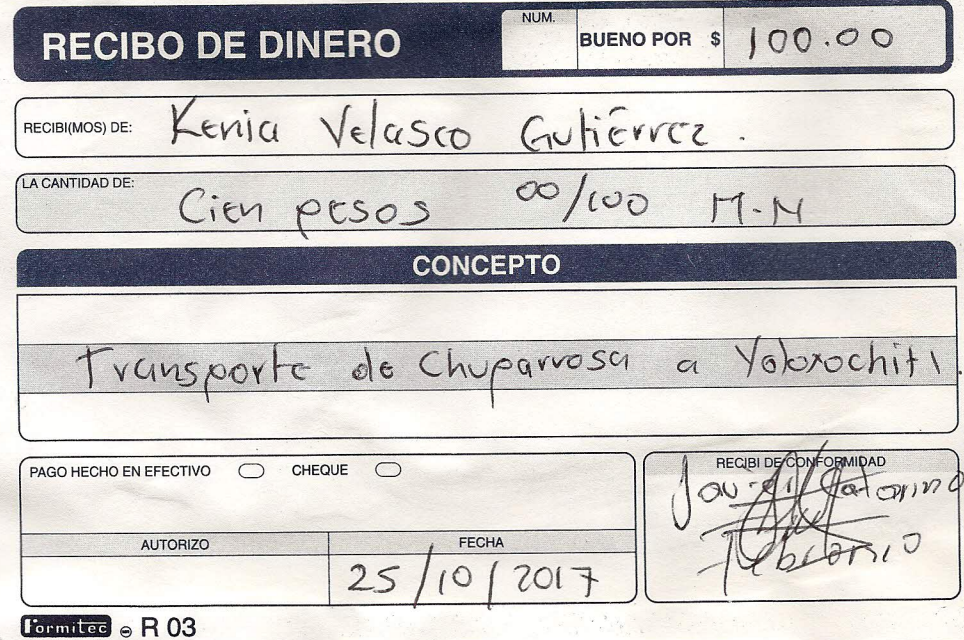 RECIBO DE DINERO
NUM.
BUENO POR $ 100.00
RECIBI(MOS) DE: Kenia Velasco Gutiérrez.
LA CANTIDAD DE: Cien pesos 00/100 M.N
CONCEPTO
Transporte de Chuparrosa a Yoloxochitl.
PAGO HECHO EN EFECTIVO CHEQUE
RECIBI DE CONFORMIDAD
Javier
AUTORIZO
FECHA
25/10/2017
formitec R 03